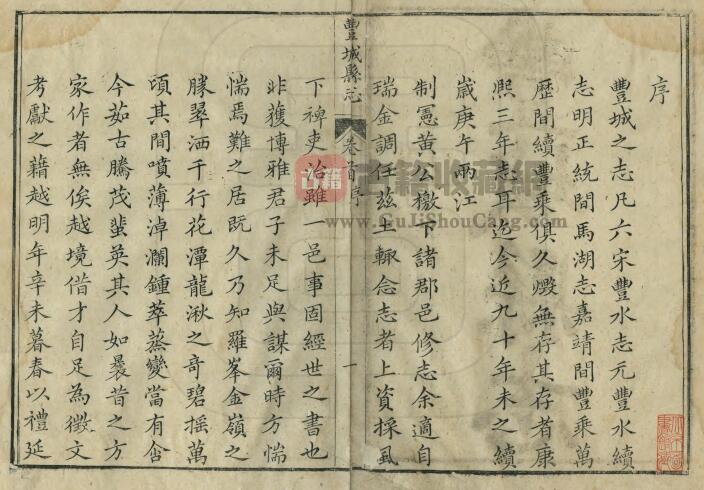 序
豐城之志凡六宋豐水志元豐水續
志明正統間馬湖志嘉靖間豐乘萬
歷間續豐乘俱久燬無存其存者康
熙三年志耳迄今近九十年未之續
歲庚午兩江
制憲黃公檄下諸郡邑修志余適自
瑞金調任兹土輒念志者上資採風
豐城縣志
卷首序
一
下裨吏治雖一邑事固經世之書也
非獲博雅君子未足與謀爾時方惴
惴焉難之居既久乃知羅峯金嶺之
勝翠洒千行花潭龍湫之奇碧摇萬
頃其間噴薄淖瀾鍾萃蒸變當有含
今茹古騰茂蜚英其人如曩昔之方
家作者無俟越境借才自足為徵文
考獻之藉越明年辛未暮春以禮延
古籍收藏網
www.GuJiShouCang.com